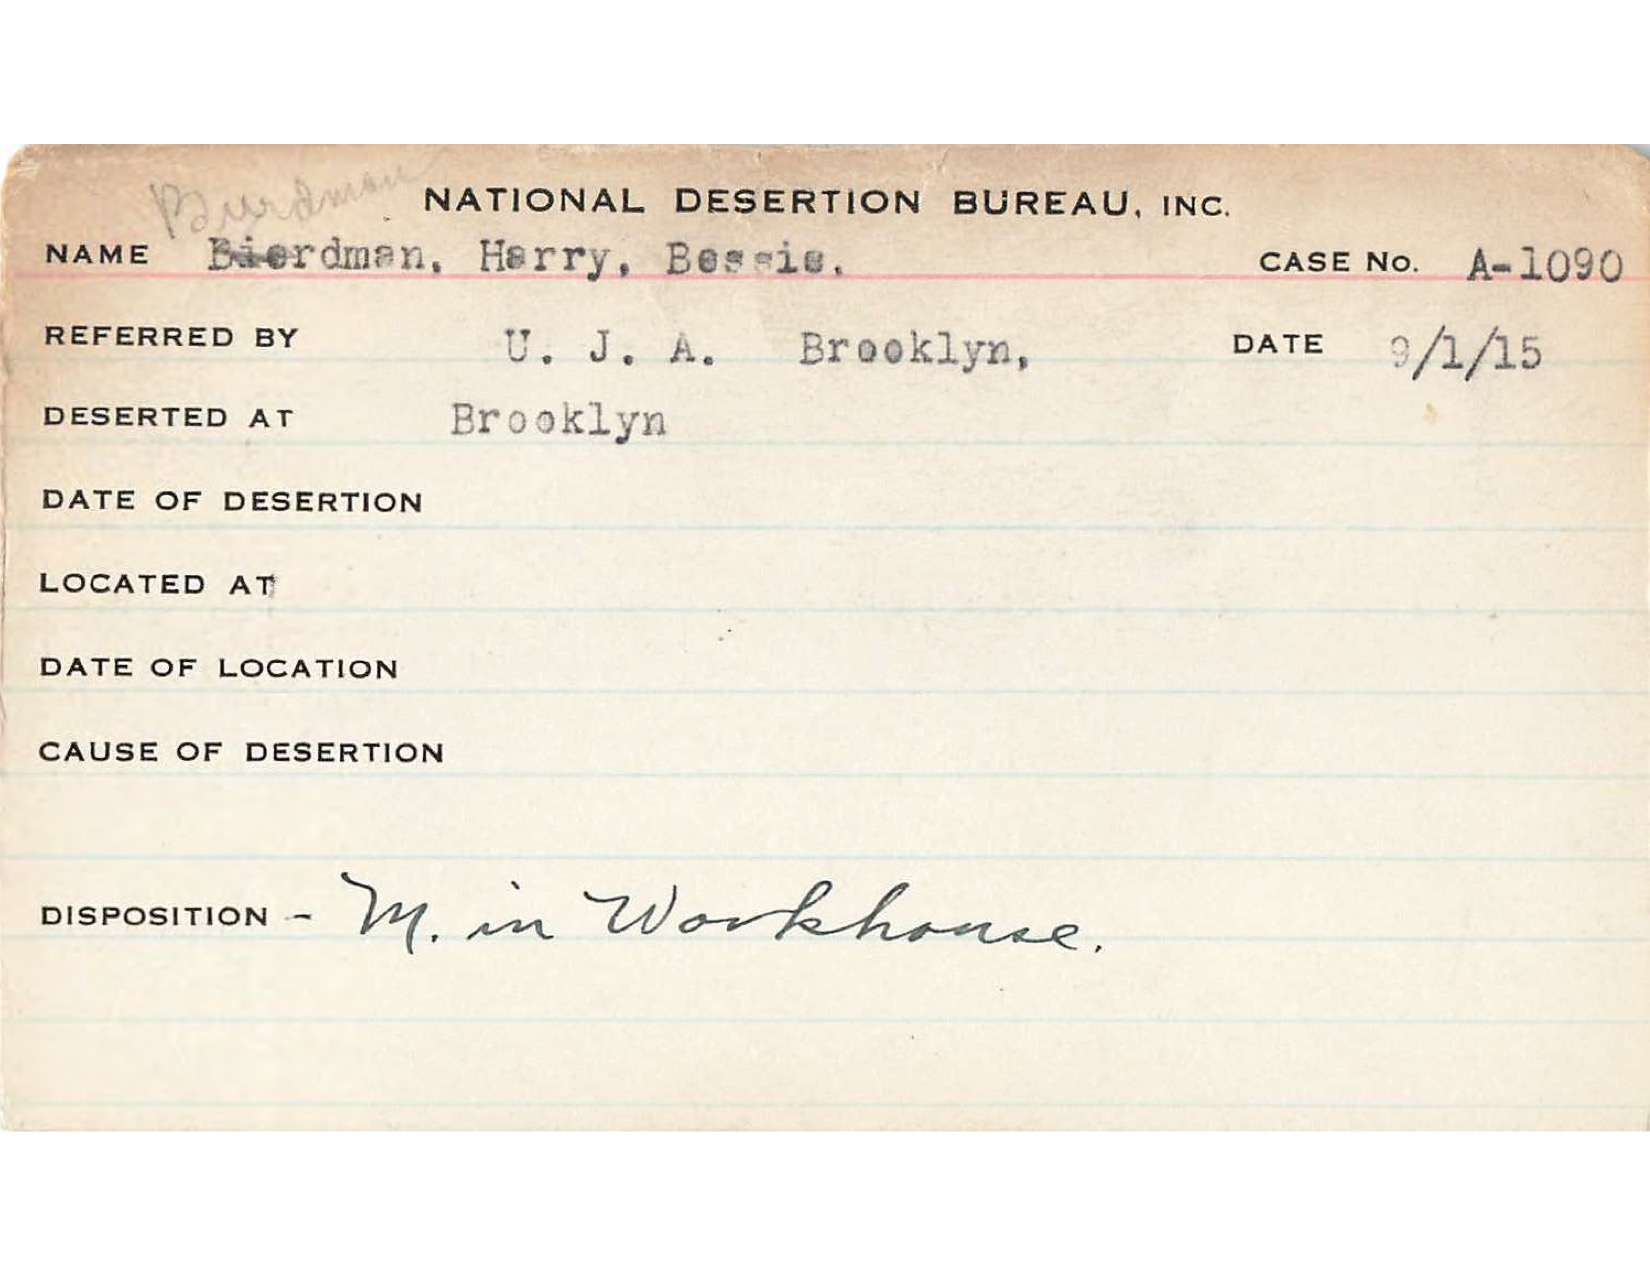 Burdman
NATIONAL DESERTION BUREAU, INC.
NAME Bierdman, Harry, Bessie. CASE No. A-1090
REFERRED BY U. J. A. Brooklyn, DATE 9/1/15
DESERTED AT Brooklyn
DATE OF DESERTION
LOCATED AT
DATE OF LOCATION
CAUSE OF DESERTION
DISPOSITION - M. in Workhouse.